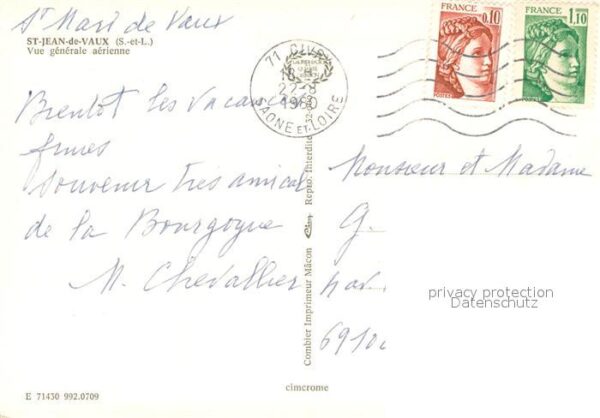 St Mard de Vaux
ST-JEAN-de-VAUX (S.-et-L.)
Vue générale aérienne
Bientot les vacances
Souvenir très amical
de la Bourgogne
M. Chevallier
E 71430 992.0709
71 GIVRY
22-8
1980
SAONE ET LOIRE
FRANCE
0,10
POSTES
FRANCE
1,10
POSTES
Combier Imprimeur Mâcon
Repro. Interdite
cimcrome
Monsieur et Madame
G.
6910
privacy protection
Datenschutz